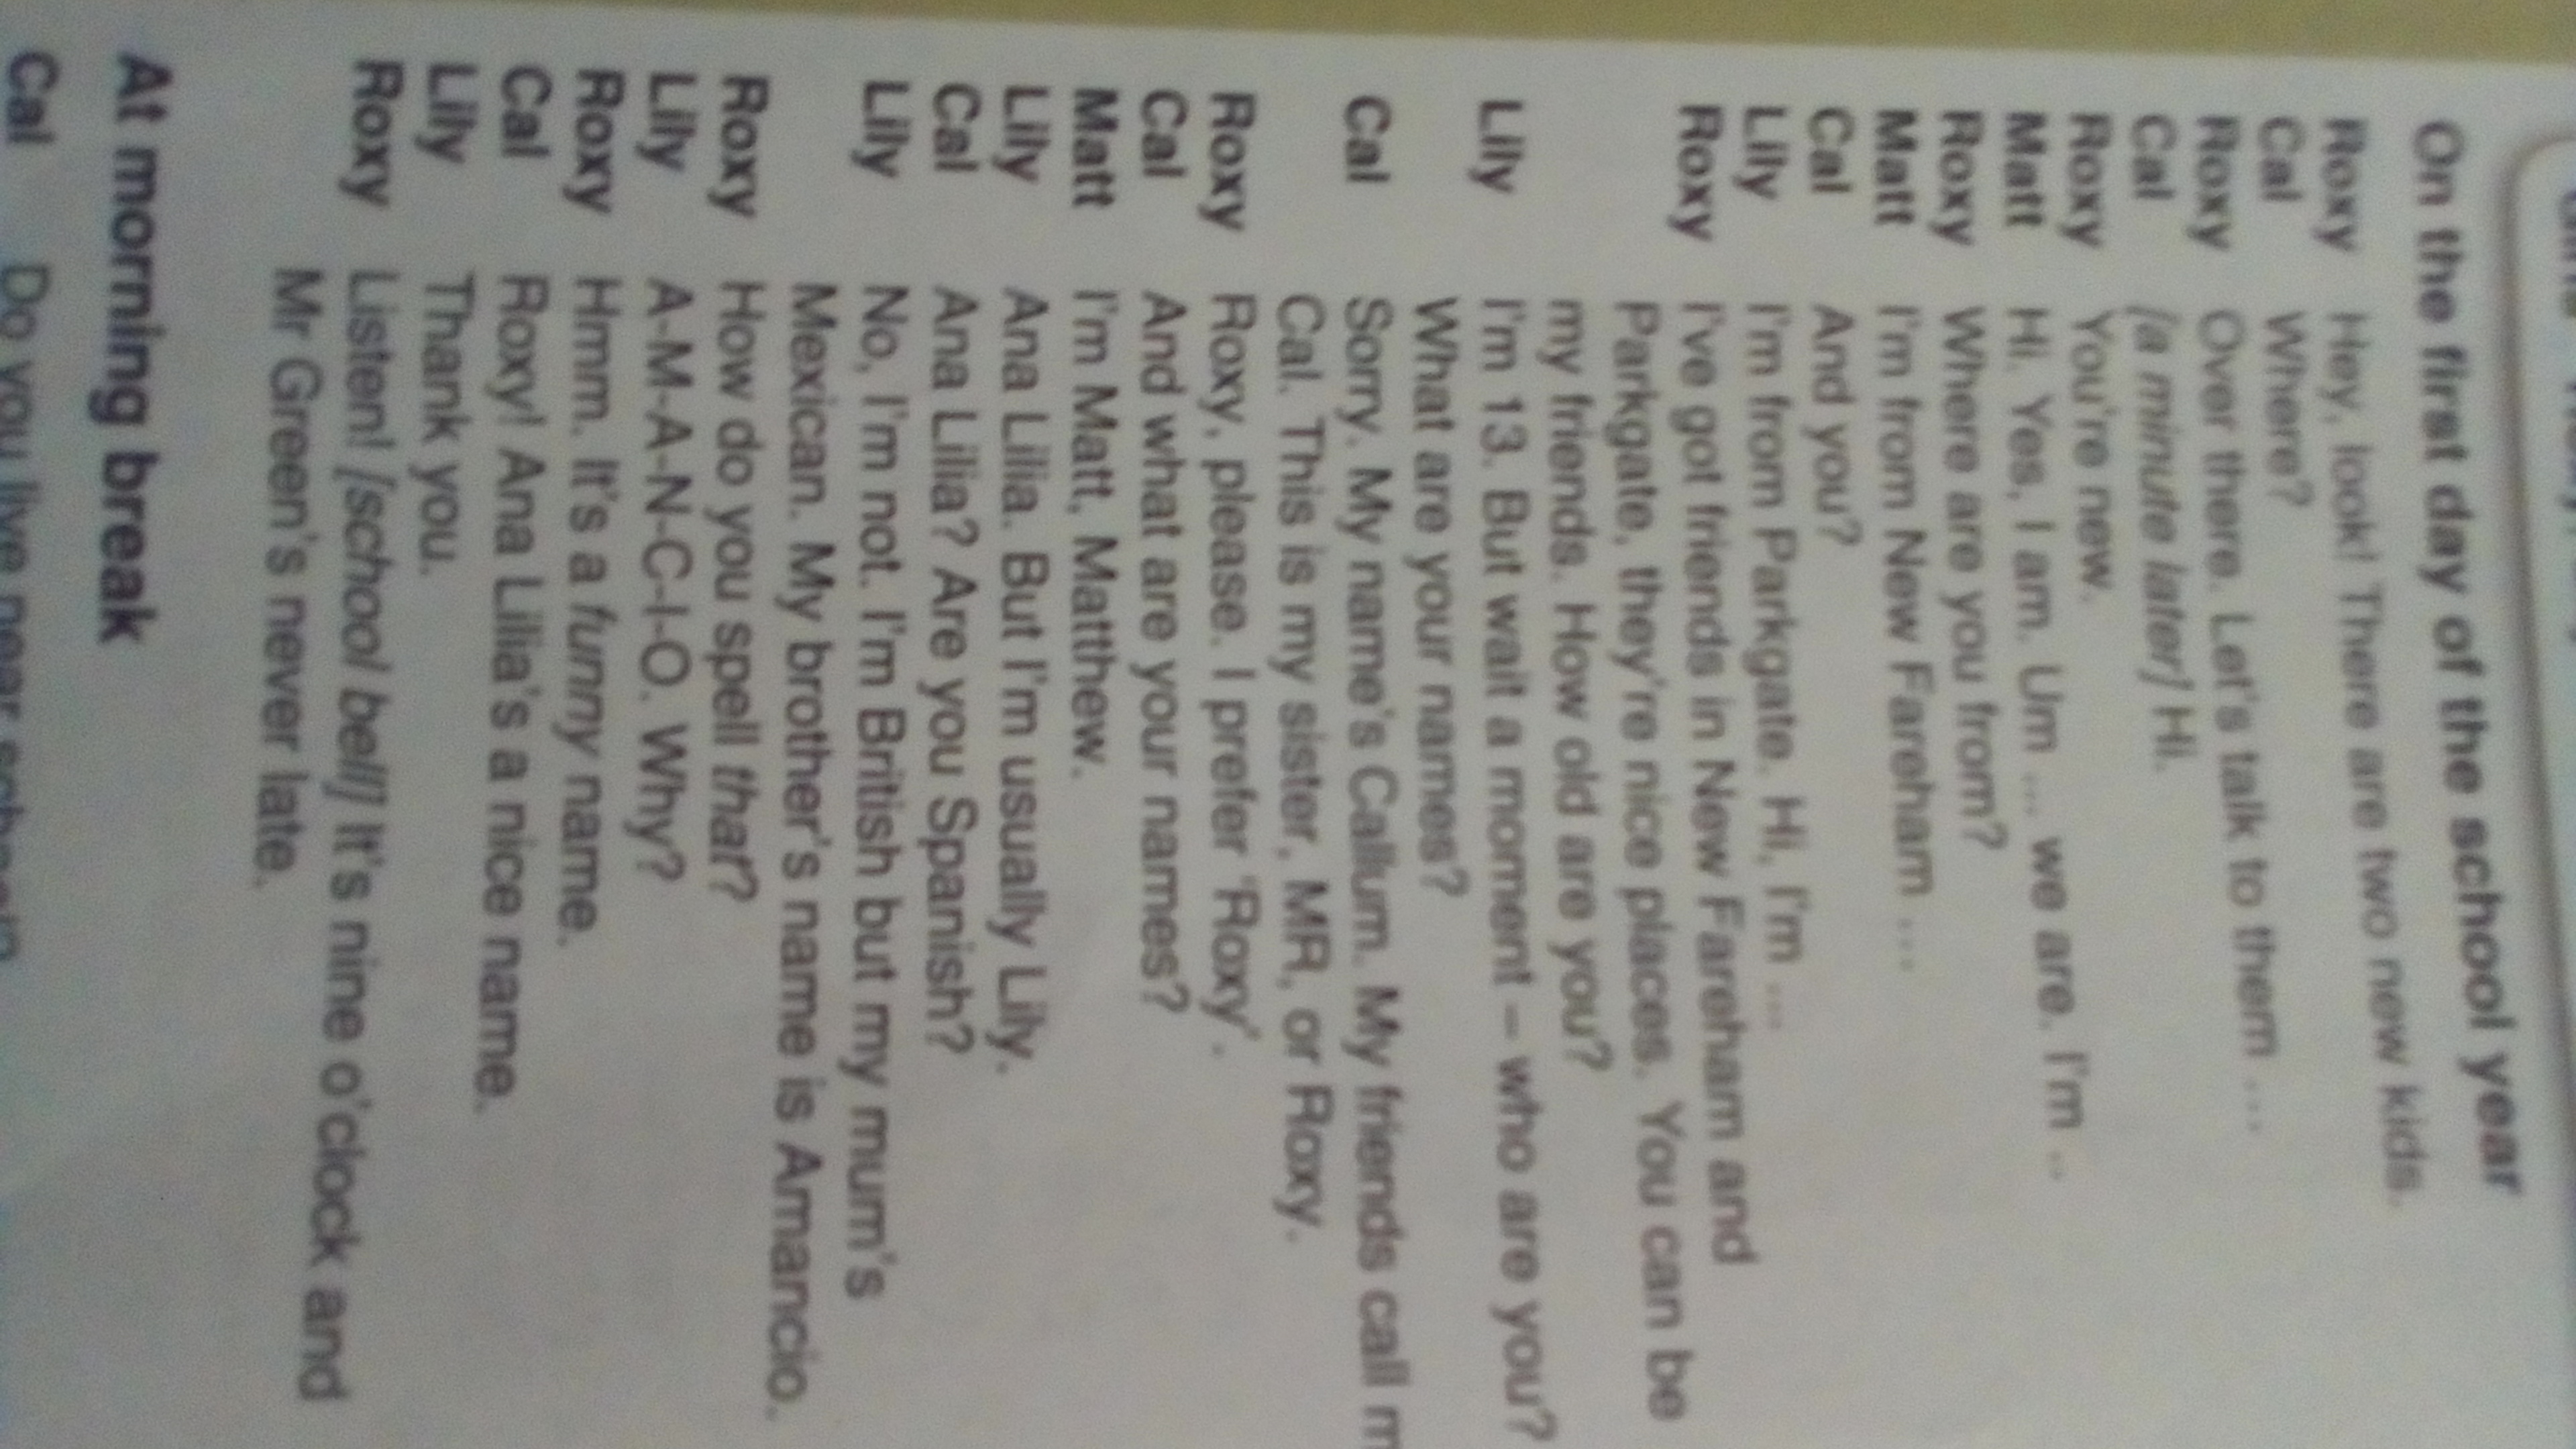 On the first day of the school year
Roxy Hey, look! There are two new kids.
Cal Where?
Roxy Over there. Let's talk to them ...
Cal [a minute later] Hi.
Roxy You're new.
Matt Hi. Yes, I am. Um ... we are. I'm ..
Roxy Where are you from?
Matt I'm from New Fareham ...
Cal And you?
Lily I'm from Parkgate. Hi, I'm ...
Roxy I've got friends in New Fareham and
Parkgate, they're nice places. You can be
my friends. How old are you?
Lily I'm 13. But wait a moment – who are you?
What are your names?
Cal Sorry. My name's Callum. My friends call m
Cal. This is my sister, MR, or Roxy.
Roxy Roxy, please. I prefer 'Roxy'.
Cal And what are your names?
Matt I'm Matt, Matthew.
Lily Ana Lilia. But I'm usually Lily.
Cal Ana Lilia? Are you Spanish?
Lily No, I'm not. I'm British but my mum's
Mexican. My brother's name is Amancio.
Roxy How do you spell that?
Lily A-M-A-N-C-I-O. Why?
Roxy Hmm. It's a funny name.
Cal Roxy! Ana Lilia's a nice name.
Lily Thank you.
Roxy Listen! [school bell] It's nine o'clock and
Mr Green's never late.
At morning break
Cal Do you live near